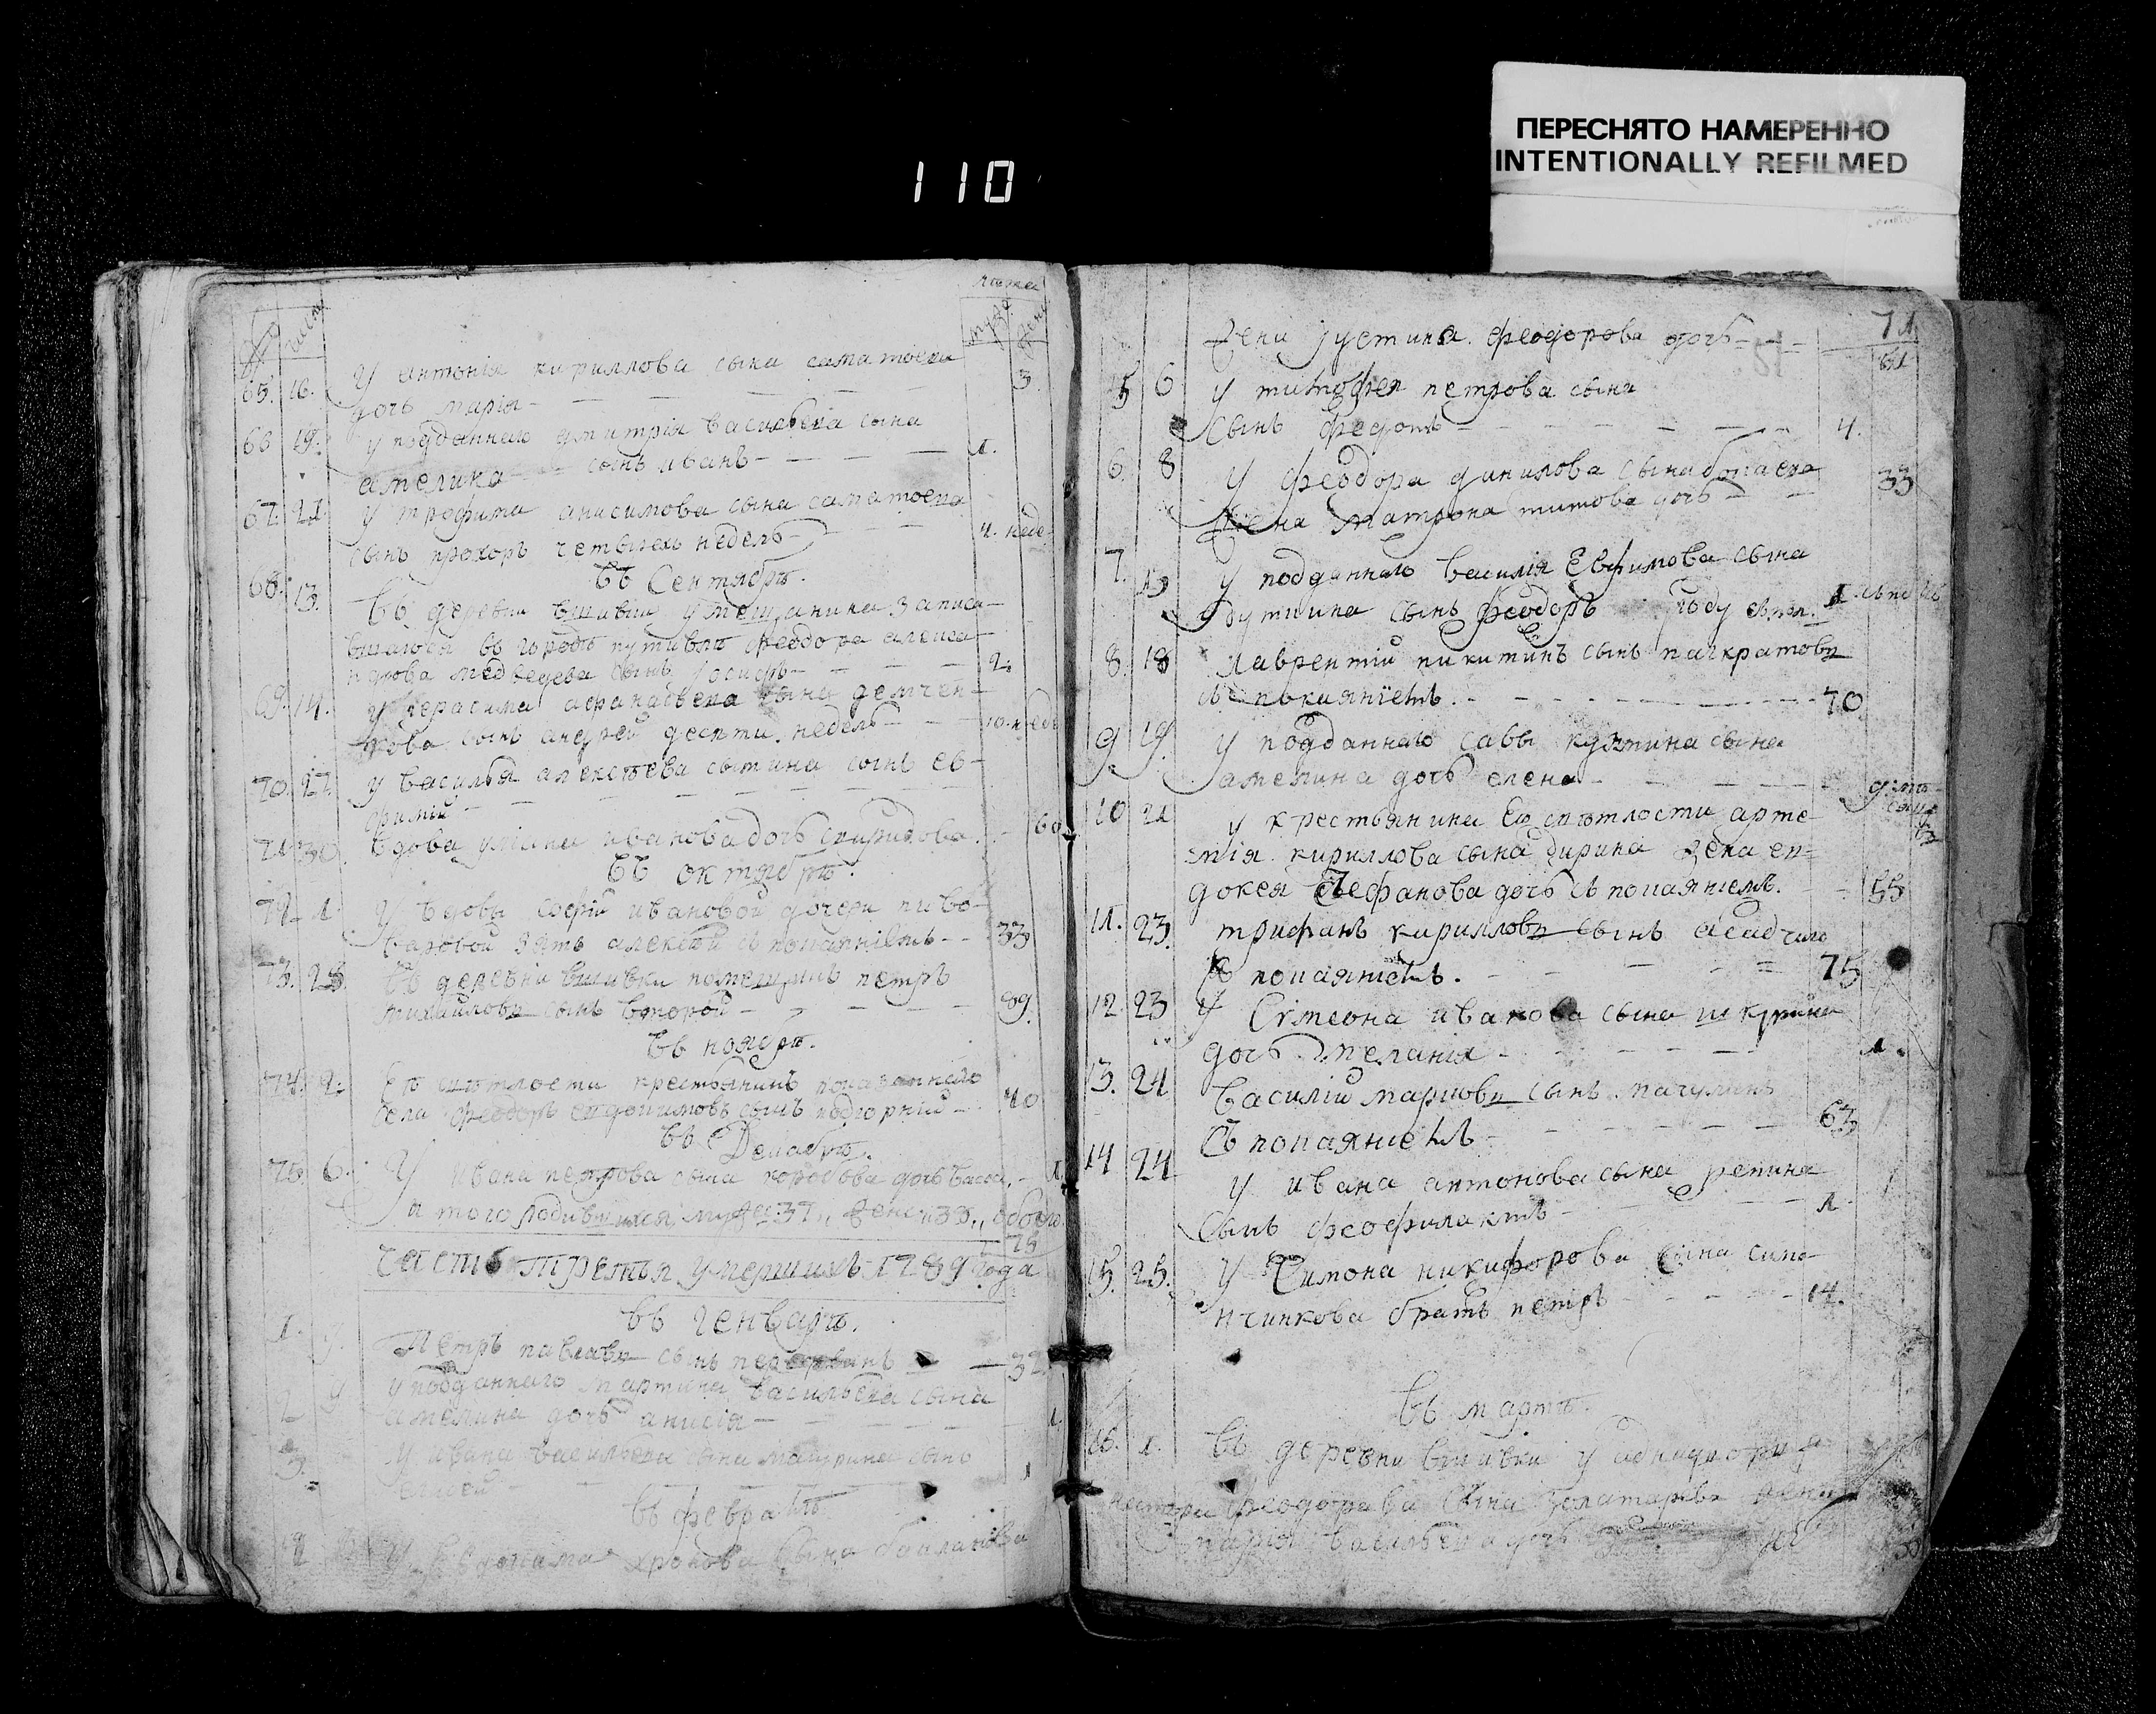 110
ПЕРЕСНЯТО НАМЕРЕННО
INTENTIONALLY REFILMED
65. 16. У антонія кириллова сына саматоена
дочь марія 3.
66 19. У подданнаго дмитрія васильева сына
амелина сынъ иванъ 1.
67. 21. У трофима анисимова сына саматоена
сынъ прохоръ четырехъ недель 4. неде
въ Сентябрѣ.
68. 13. Въ деревни вшивки у мещанина записа-
вшагося въ городѣ путивлѣ феодора алекса-
ндрова медведева сынъ іосифъ 2.
69. 14. У герасима афанасьева сына демчен-
кова сынъ андрей десяти недель 10. недѣ
70. 27. У василья алексѣева сына сынъ ев-
фимій
71 30. Вдова иванова дочь 60
въ октябрѣ.
72 1. У вдовы софіи ивановой дочери пиво-
варовой зять алексѣй съ покаяніемъ 33
73. 25. Въ деревни вшивки помещикъ петръ
михайловъ сынъ второй 89.
въ ноябрѣ.
74. 2. Ея свѣтлости крестьянинъ показаннаго
села феодоръ евдокимовъ сынъ подгорній 40
въ Декабрѣ.
75. 6. У ивана петрова сына коробова дочь 1
а того родившихся муж: 37,, женс: 38,, обоего
75
часть третья умершихъ 1789 года
въ генварѣ.
1. Петръ павловъ сынъ 32
2 У подданнаго мартина васильева сына
амелина дочь анисія 1.
3. У ивана васильева сына сынъ
елисей 1
въ февралѣ
4 У евдокима сына
71
жена іустина феодорова дочь 51
5 6 У тимофея петрова сына
сынъ федотъ 4.
6. 8 У феодора данилова сына
жена матрона титова дочь 33
7. 13 У подданнаго василія Евфимова сына
сынъ феодоръ году
8. 18 Лаврентій никитинъ сынъ панкратовъ
съ покаяніемъ. 70
9 19. У подданнаго савы кузмина сына
амелина дочь елена
10 21 У крестьянина Ея свѣтлости арте-
мія кириллова сына жена ев-
докея Стефанова дочь съ покаяніемъ. 55
11. 23. трифанъ кирилловъ сынъ
съ покаяніемъ. 75
12. 23 У Сѵмеона иванова сына
дочь меланія 1.
13. 24 Василій марковъ сынъ
съ покаяніемъ 63
14 24 У ивана антонова сына репина
сынъ феофилактъ 1
15. 25. У Симона никифорова сына симо-
нчинкова братъ петръ 14.
въ мартѣ.
16. 1. Въ деревни вшивки у однодворца
феодорова сына золатарева жена
марія васильева дочь